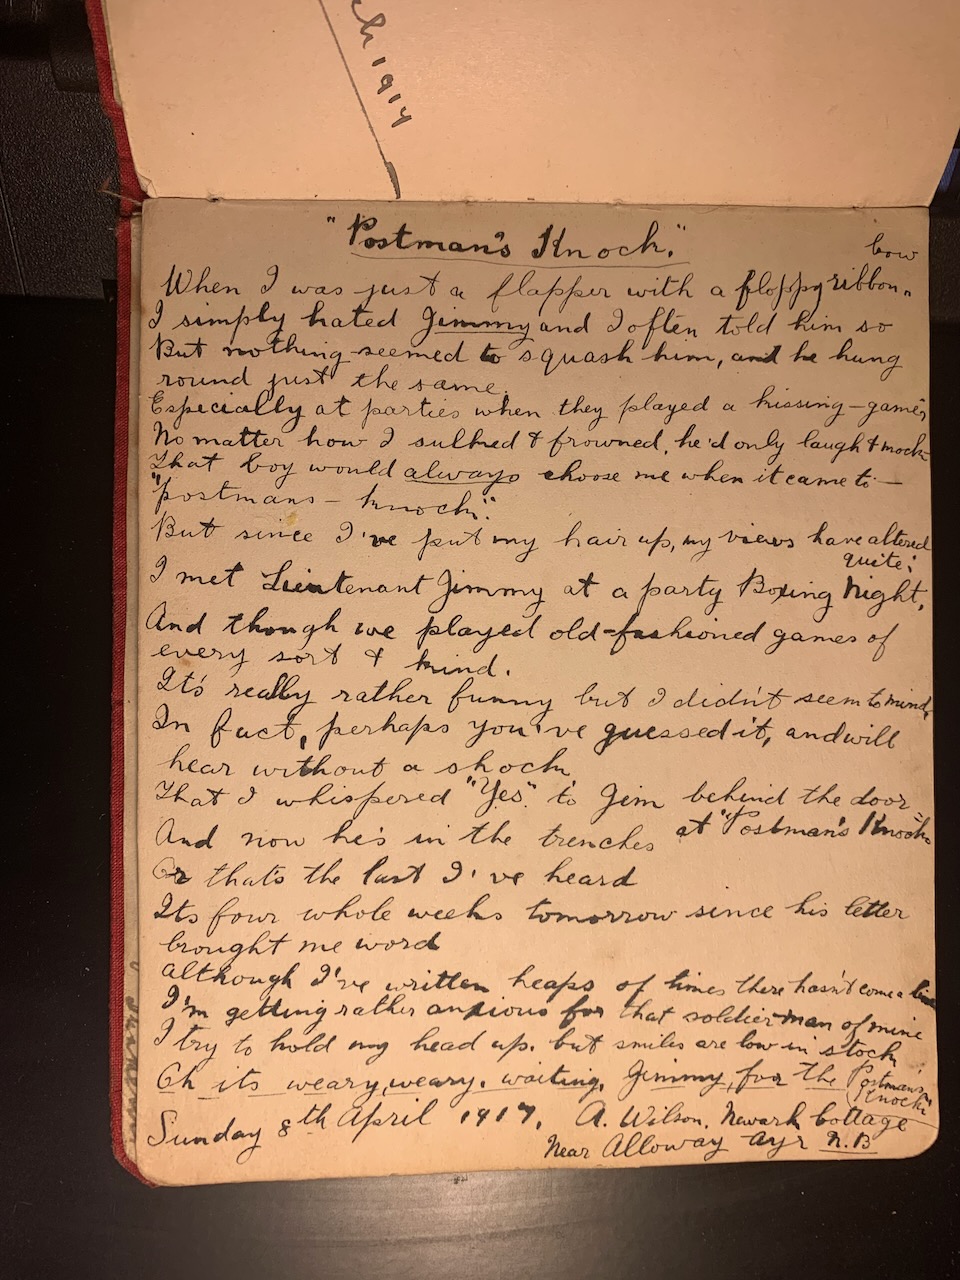 ch 1914
"Postman's Knock."
bow
When I was just a flapper with a floppy ribbon-
I simply hated Jimmy and I often told him so
But nothing seemed to squash him, and he hung
round just the same.
Especially at parties when they played a kissing-game,
No matter how I sulked & frowned, he'd only laugh & mock
That boy would always choose me when it came to -
"postmans - knock."
But since I've put my hair up, my views have altered
quite;
I met Lieutenant Jimmy at a party Boxing Night,
And though we played old-fashioned games of
every sort & kind.
It's really rather funny but I didn't seem to mind,
In fact, perhaps you've guessed it, and will
hear without a shock
That I whispered "Yes" to Jim behind the door
at "Postman's Knock
And now he's in the trenches
Or that's the last I've heard
Its four whole weeks tomorrow since his letter
brought me word
although I've written heaps of times there hasn't come a line
I'm getting rather anxious for that soldier-man of mine
I try to hold my head up. but smiles are low in stock
Oh its weary, weary. waiting, Jimmy, for the Postmans
Knock
Sunday 8th April 1917. A. Wilson. Newark Cottage
Near Alloway Ayr N.B